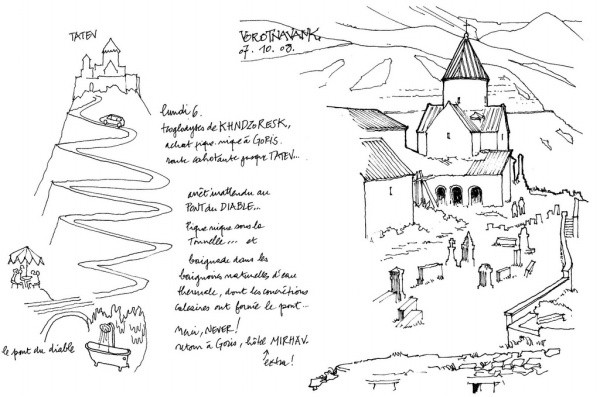 TATEV
lundi 6.
troglodytes de KHNDZORESK,
achat pique-nique à GORIS.
route cahotante jusque TATEV...
arrêt inattendu au
PONT du DIABLE...
Pique nique sous la
Tonnelle... et
baignade dans les
baignoires naturelles d'eau
thermale, dont les concrétions
calcaires ont formé le pont...
merci, NEVER!
retour à Goris, hôtel MIRHAV.
extra!
le pont du diable
VOROTNAVANK.
07.10.08.